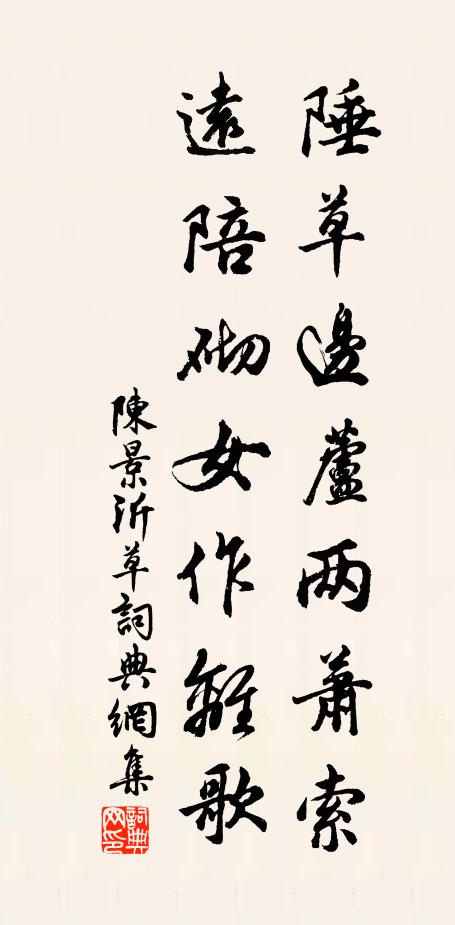 陲草邊蘆兩蕭索
遠陪砌女作離歌
陳景沂草詞典網集
詞典網印